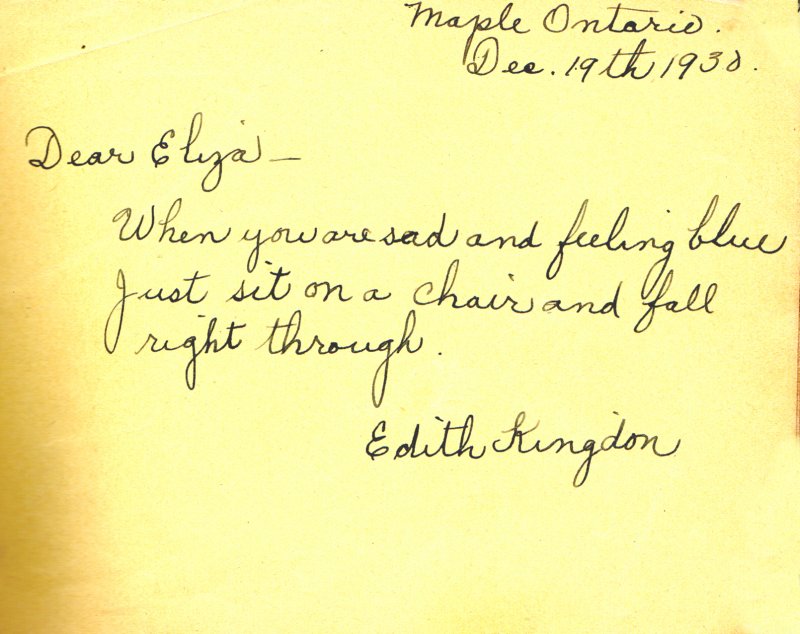 Maple Ontario.
Dec. 19th 1930.
Dear Eliza —
When you are sad and feeling blue
Just sit on a chair and fall
right through.
Edith Kingdon